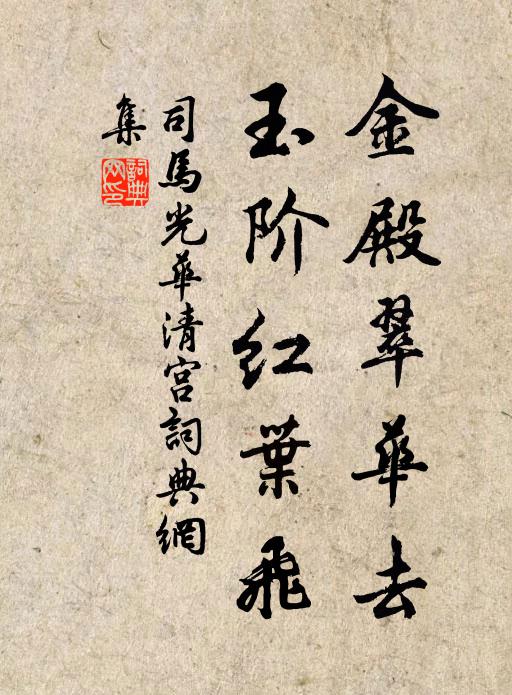 金殿翠華去
玉阶红葉飛
司馬光華清宫詞典網
集
詞典網印